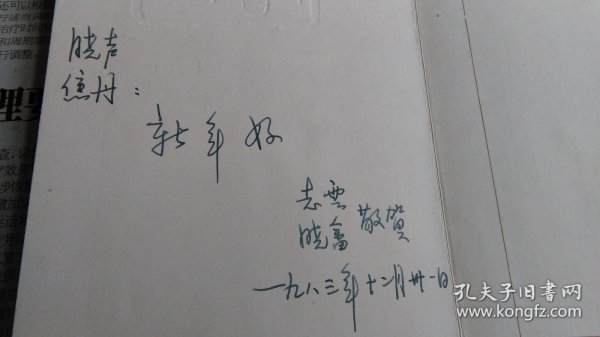 晓声
焦丹：
新年好
志雲
晓蕾 敬贺
一九八三年十二月卅一日
孔夫子旧书网
www.kongfz.com